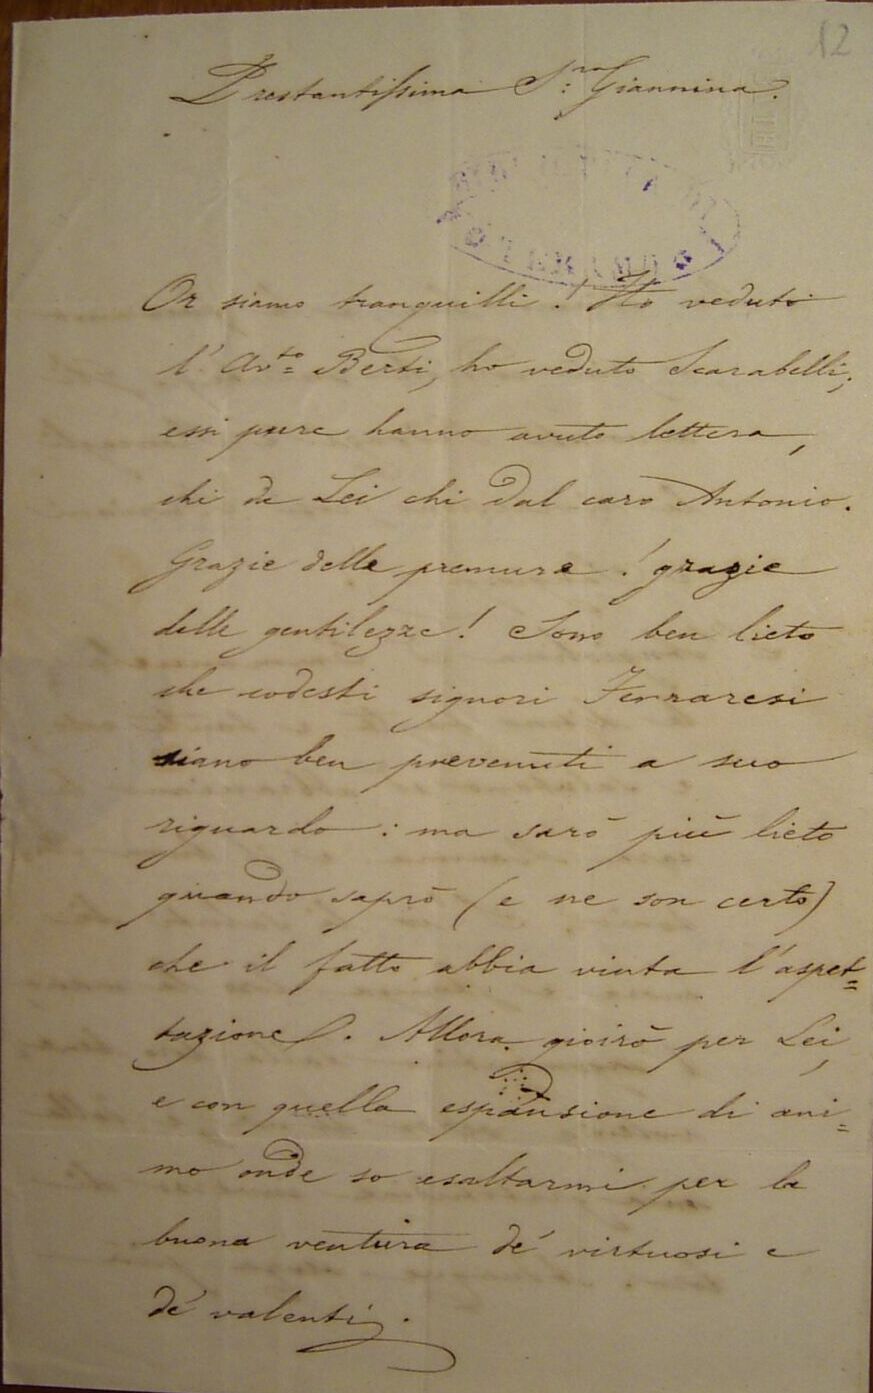 12
Prestantissima S.ra Giannina.
TERAMO
Or siamo tranquilli! Ho veduto
l'Av.to Berti, ho veduto Scarabelli;
essi pure hanno avuto lettera,
chi da Lei chi dal caro Antonio.
Grazie delle premure! grazie
delle gentilezze! Sono ben lieto
che codesti signori Ferraresi
siano ben prevenuti a suo
riguardo: ma sarò più lieto
quando saprò (e ne son certo)
che il fatto abbia vinta l'aspet=
tazione. Allora gioirò per Lei,
e con quella espansione di ani=
mo onde so esaltarmi per la
buona ventura de' virtuosi e
de' valenti.